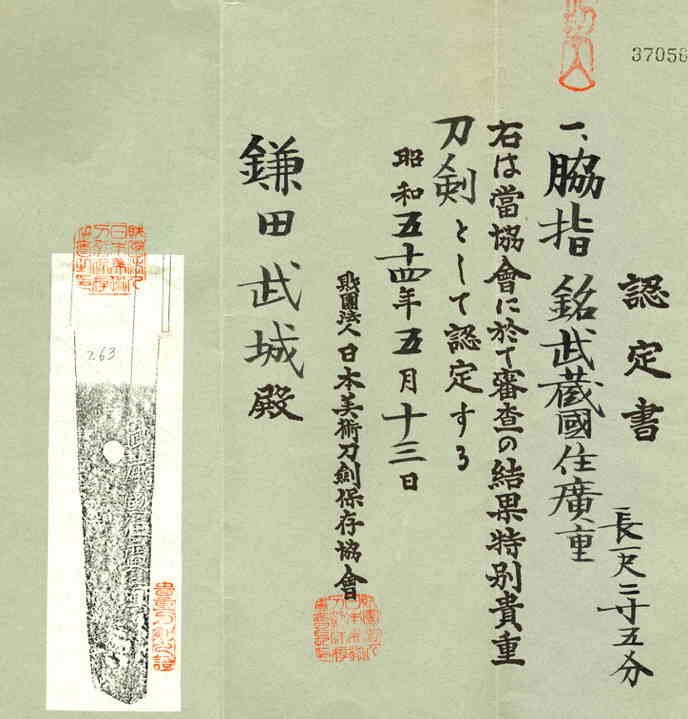 37056
認定書
一、脇指 銘武蔵國住廣重
長一尺二寸五分
右は當協會に於て審査の結果特別貴重
刀剣として認定する
昭和五十四年五月十三日
財團法人日本美術刀剣保存協會
鎌田武城殿
263